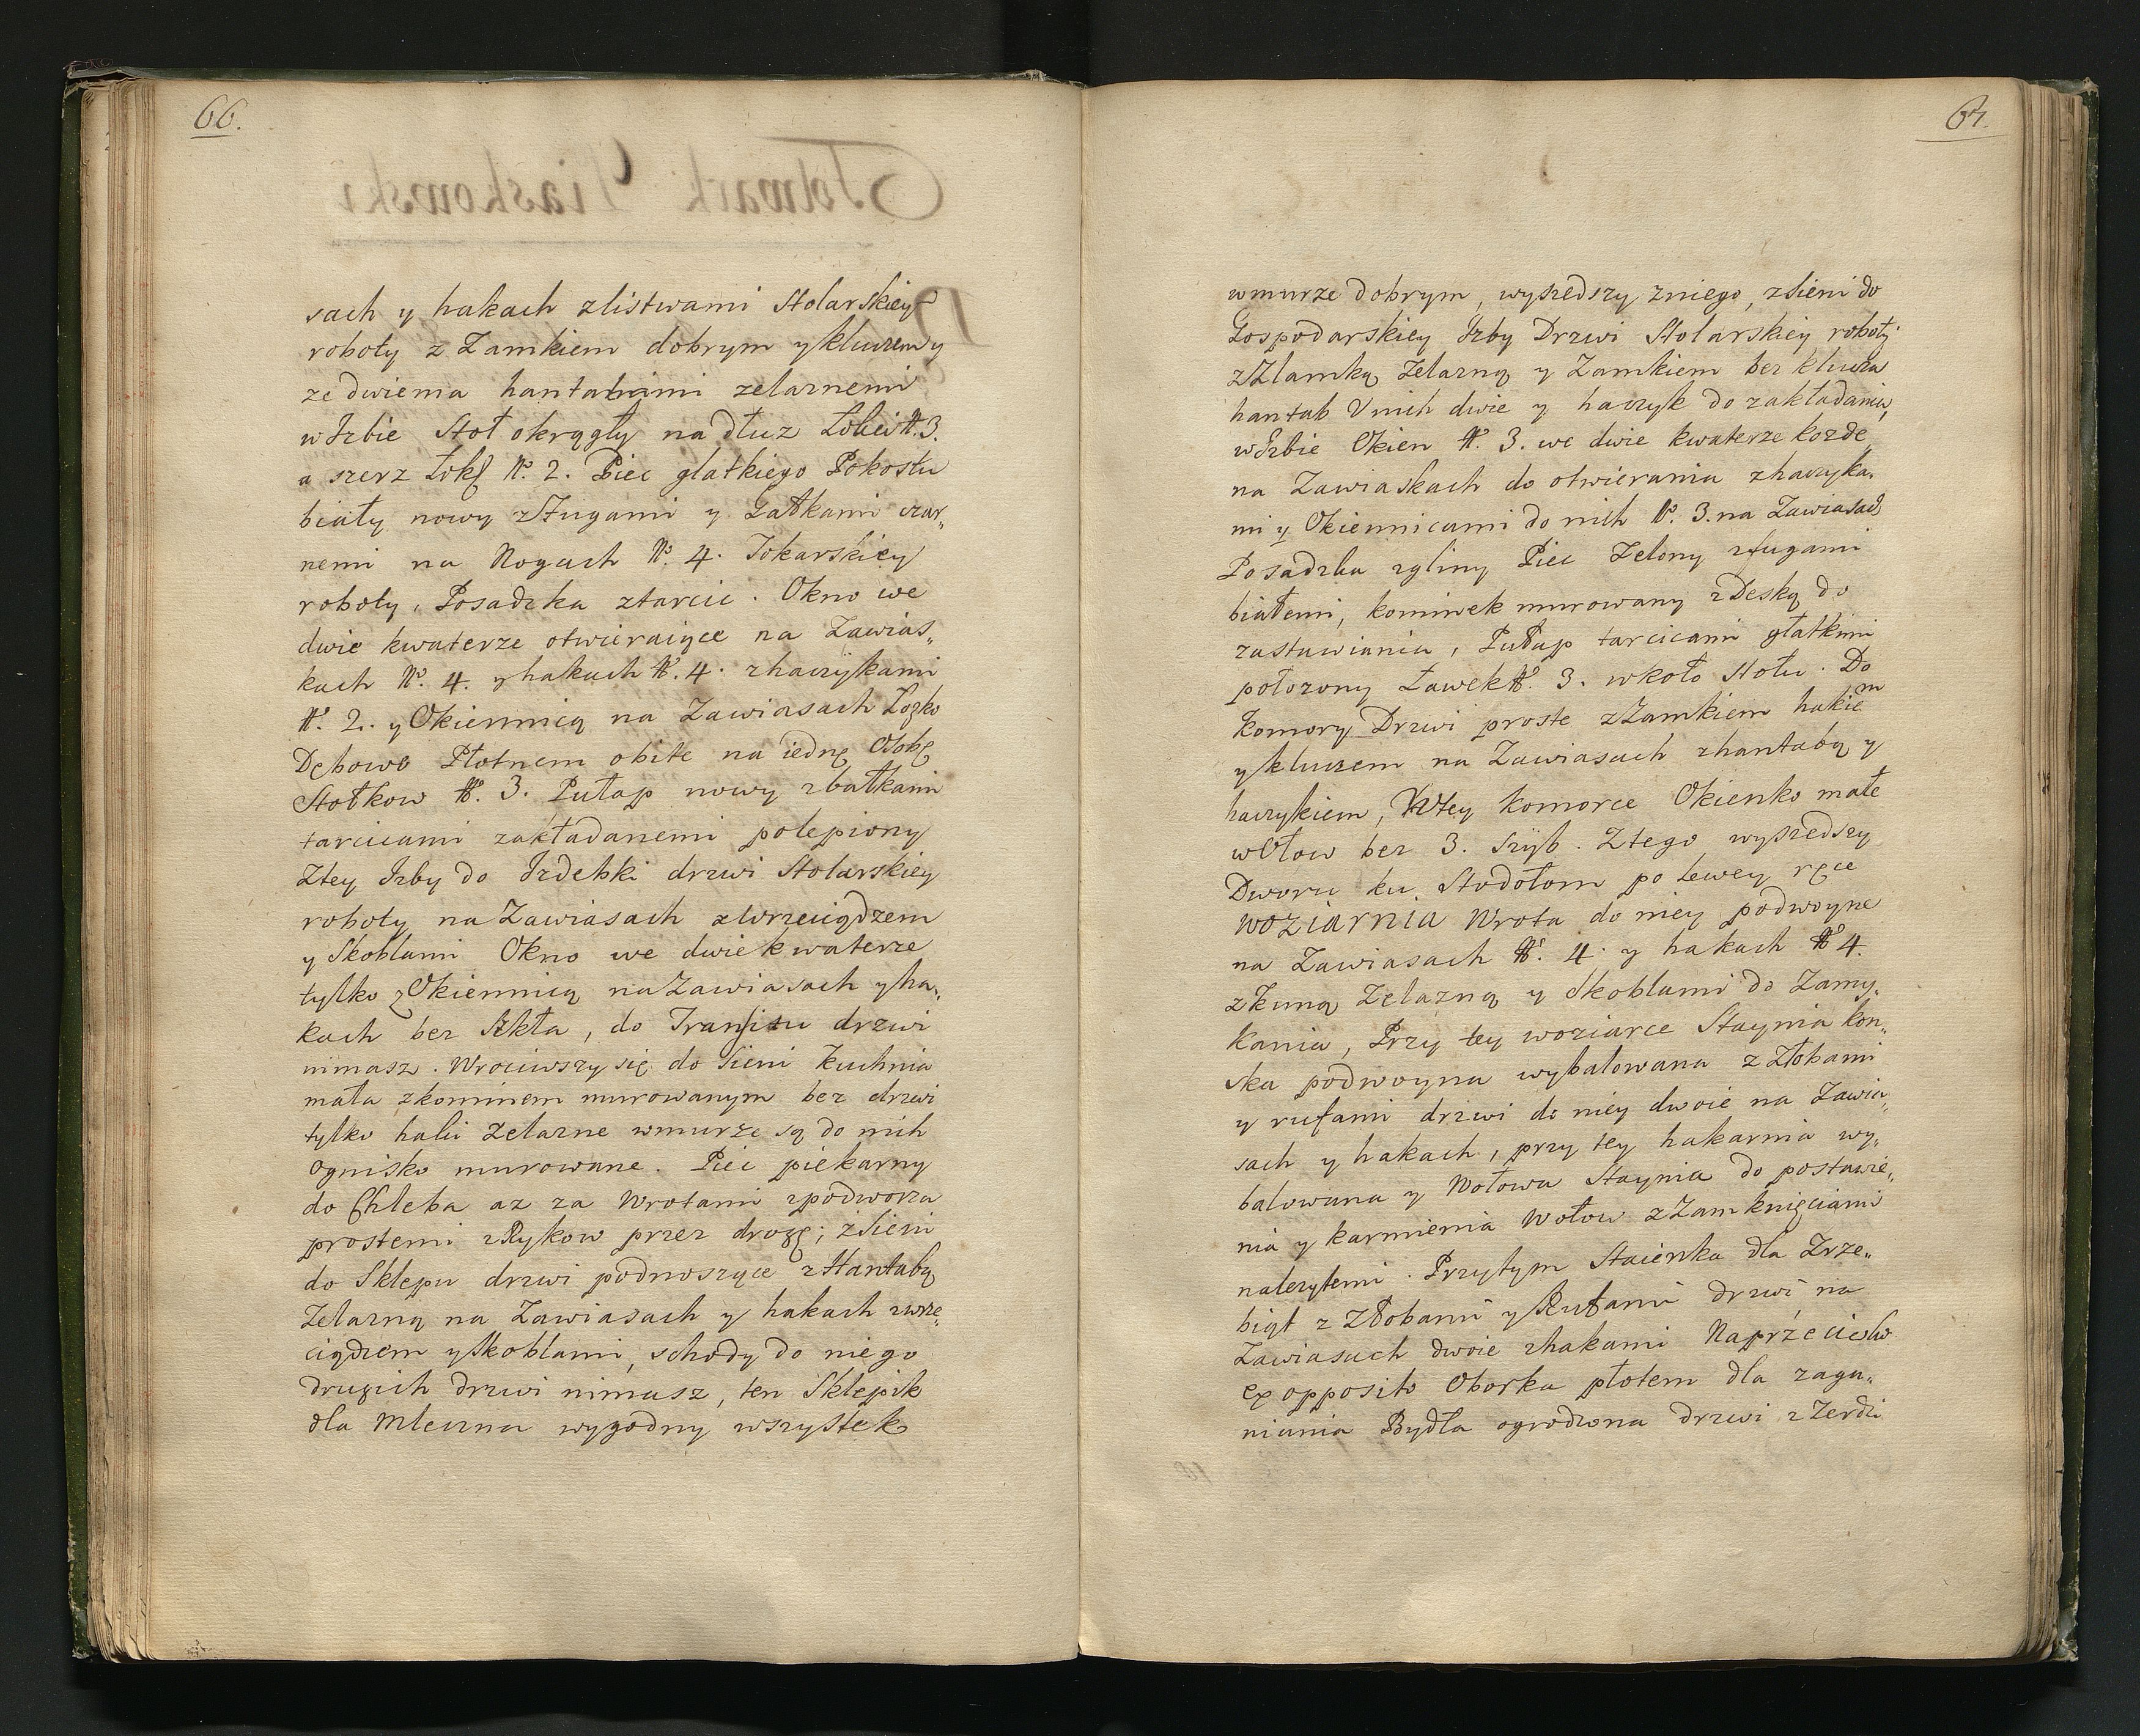 66.
sach y hakach zlistwami Stolarskiey
roboty z Zamkiem dobrym y kluczem y
ze dwiema hantabami zelaznemi
w Jzbie Stoł okrągły na dłuz Łokci № 3.
a szerz Łok: № 2. Piec glatkiego Pokostu
biały nowy z Fugami y Gałkami czar„
nemi na Nogach № 4. Tokarskiey
roboty, Posadzka ztarcic. Okno we
dwie kwaterze otwieraiące na Zawias„
kach № 4. y hakach № 4. zhaczykami
№ 2. y Okiennicą na Zawiasach Łozko
Dębowe Płotnem obite na iednę Osobę
Stołkow № 3. Pułap nowy zbałkami
tarcicami zakładanemi polepiony
Ztey Jzby do Jzdebki drzwi Stolarskiey
roboty na Zawiasach zWrzeciądzem
y Skoblami Okno we dwie kwaterze
tylko zOkiennicą na Zawiasach y ha„
kach bez Szkła, do Transitu drzwi
nimasz. Wrociwszy się do Sieni Kuchnia
mała zkominem murowanym bez drzwi
tylko haki zelazne wmurze są do nich
Ognisko murowane. Piec piekarny
do Chleba az za Wrotami zpodworza
prostemi zRykow przez drogę; zSieni
do Sklepu drzwi podnoszące z Hantabą
Zelazną na Zawiasach y hakach zwrze„
ciądzem y Skoblami, schody do niego
drugich drzwi nimasz, ten Sklepik
dla Mleczna wygodny wszystek
67.
wmurze dobrym, wyszedszy zniego, zSieni do
Gospodarskiey Jzby Drzwi Stolarskiey roboty
zZlamką Zelazną y Zamkiem bez klucza
hantab Unich dwie y haczyk do zakładania,
wJzbie Okien № 3. we dwie kwaterze kozde
na Zawiaskach do otwierania zhaczyka„
mi y Okiennicami do nich № 3. na Zawiasach
Posadzka zgliny Piec Zelony zfugami
białemi, kominek murowany zDeską do
zastawiania, Pułap tarcicami głatkimi
położony Ławek № 3. wkoło Stołu. Do
Komory Drzwi proste zZamkiem hakiem
y kluczem na Zawiasach zhantabą y
haczykiem, Wtey komorce Okienko małe
wOłow bez 3. Szyb. Ztego wyszedszy
Dworu ku Stodołom po Lewey ręce
woziarnia Wrota do niey podwoyne
na Zawiasach № 4. y hakach № 4.
zKuną Zelazną y Skoblami do Zamy„
kania, Przy tey woziarce Staynia Kon„
ska podwoyna wybalowana z Złobami
y rufami drzwi do niey dwoie na Zawia„
sach y hakach, przy tey hakarnia wy„
balowana y Wołowa Staynia do postawie„
nia y karmienia Wołow zZamknięciami
nalezytemi. Przytym Staienka dla Zrze„
biąt z Złobami y Rufami drzwi na
Zawiasach dwoie zhakami Naprzeciwko
ex opposito Oborka płotem dla zaga„
niania Bydła ogrodzona drzwi zZerdzi